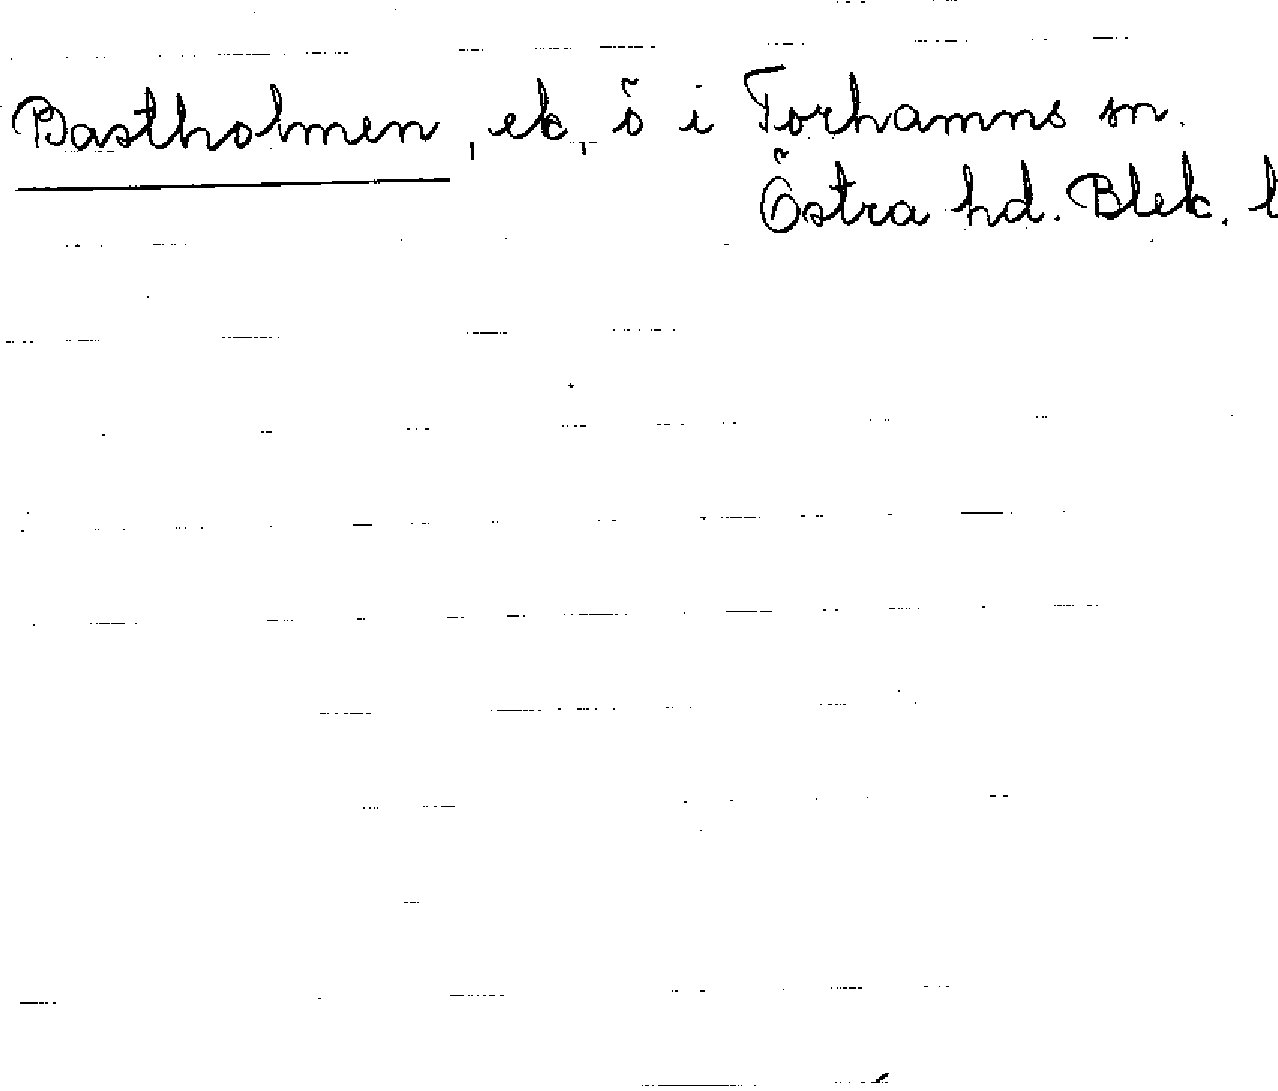 Bastholmen, ek, ö i Torhamns sn.
Östra hd. Blek. l